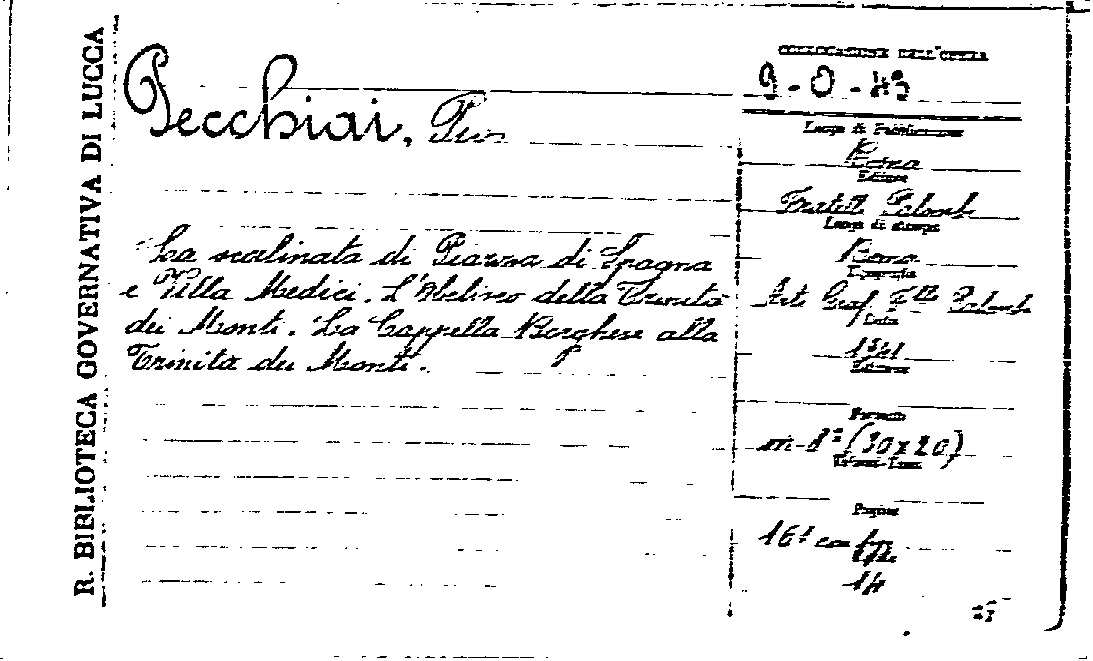 R. BIBLIOTECA GOVERNATIVA DI LUCCA
Pecchiai, Pio
La scalinata di Piazza di Spagna
e Villa Medici. L'Obelisco della Trinità
dei Monti. La Cappella Borghese alla
Trinità dei Monti.
COLLOCAZIONE DELL'OPERA
9-O-43
Luogo di Pubblicazione
Roma
Editore
Fratelli Palombi
Luogo di stampa
Roma
Tipografia
Arti Graf. F.lli Palombi
Data
1941
Edizione
Formato
in-8° (30x20)
Pagine
con fig.
14